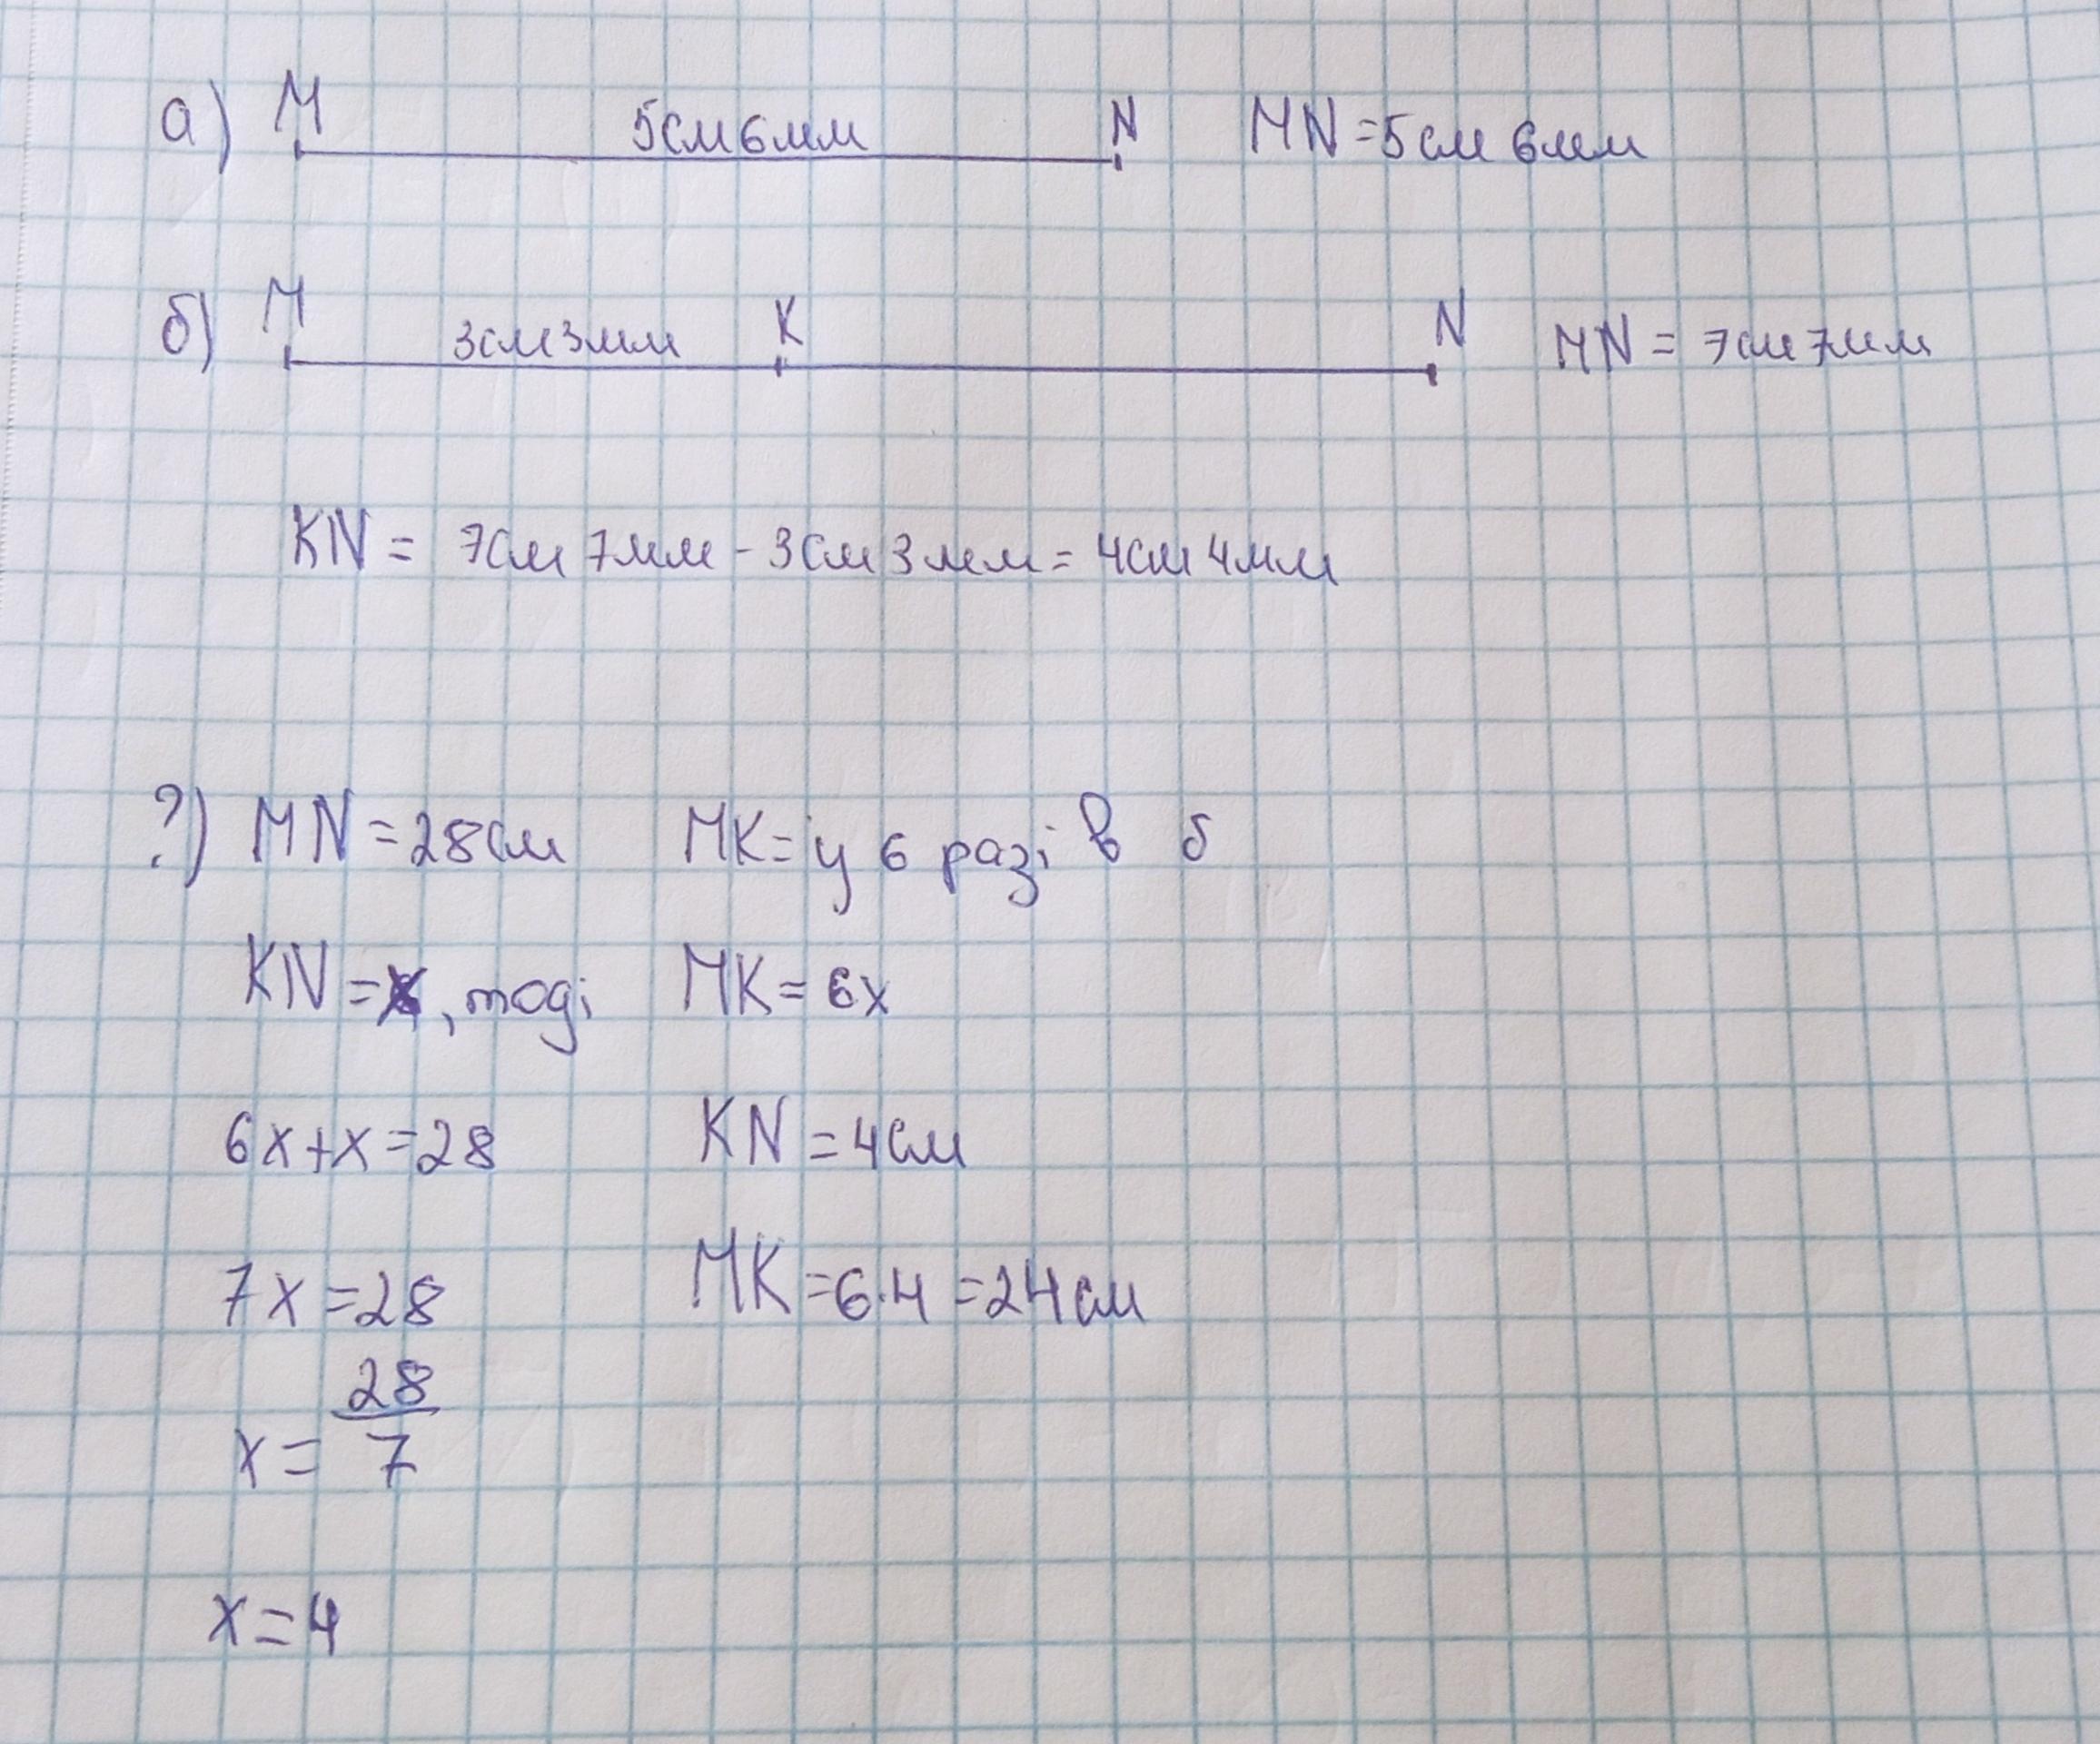 а) M 5см6мм N MN=5см 6мм
б) M 3см3мм K N MN = 7см 7мм
KN = 7см 7мм - 3см 3мм = 4см 4мм
?) MN = 28см MK = у 6 разів б
KN = x, тоді MK = 6x
6x+x=28 KN = 4см
7x=28 MK = 6·4 = 24см
x = 28/7
x = 4